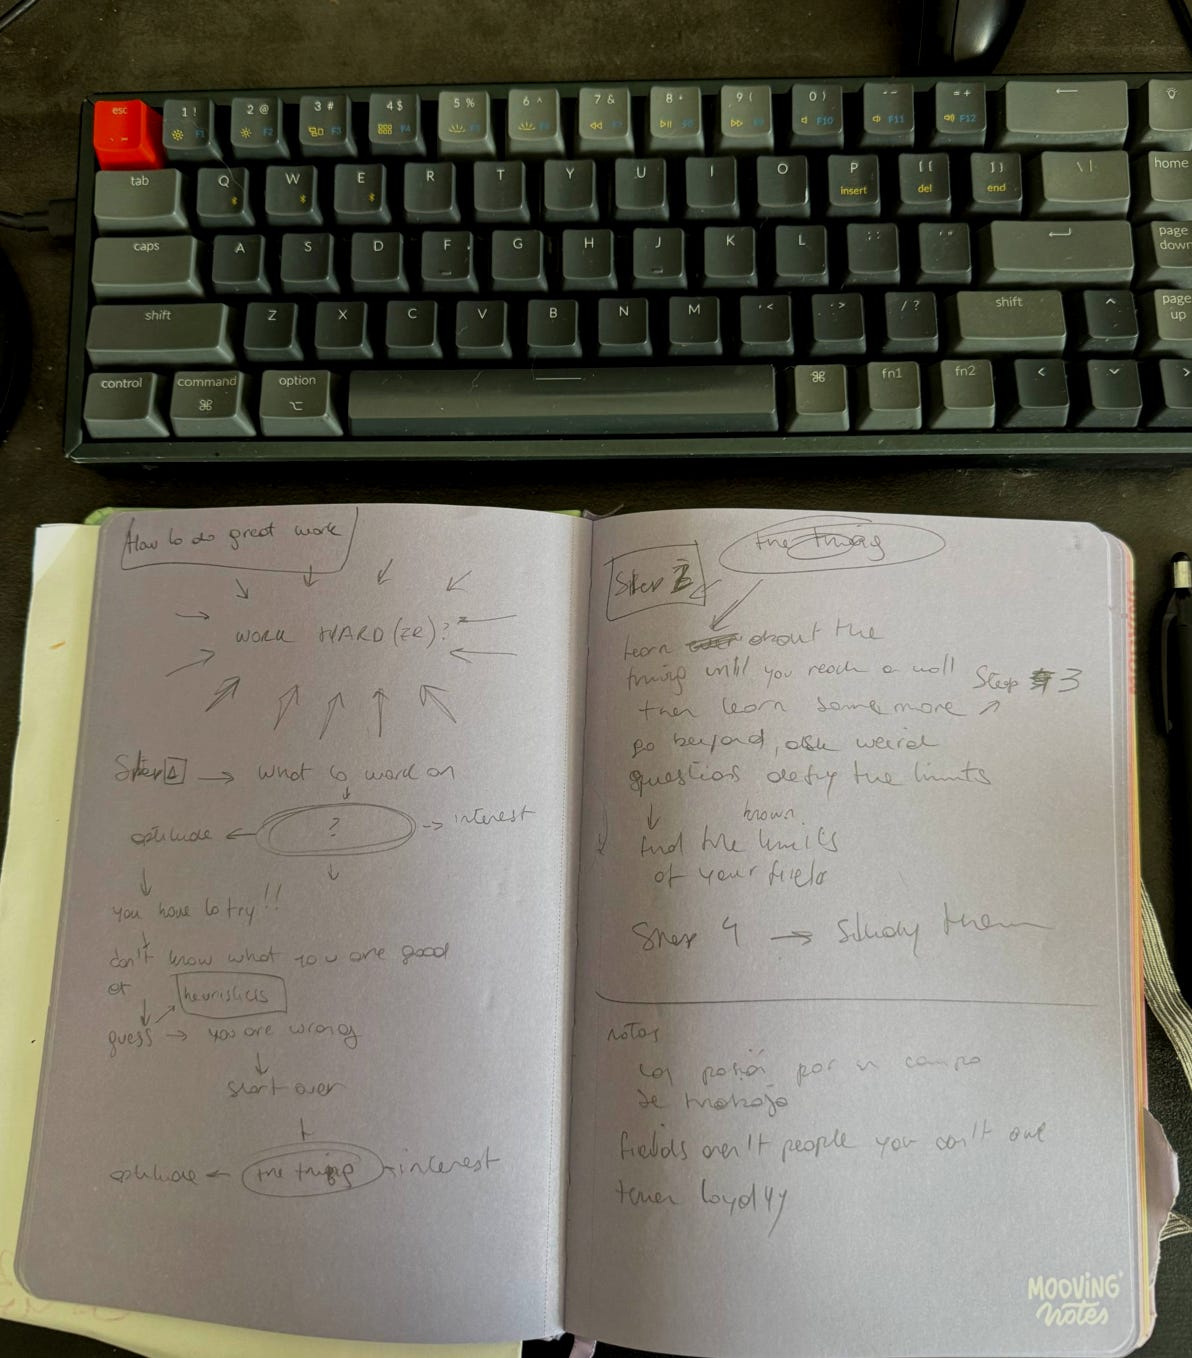 esc
1 ! F1
2 @ F2
3 # F3
4 $ F4
5 %
6 ^
7 &
8 *
9 (
0 ) F10
- - F11
= + F12
tab Q W E R T Y U I O P [ { ] } \ | home
insert del end
caps A S D F G H J K L page down
shift Z X C V B N M , < . > / ? shift ^ page up
control command ⌘ option ⌥ ⌘ fn1 fn2
How to do great work
WORK HARD(ER)?
Step 1 → what to work on
?
aptitude ← → interest
you have to try!!
don't know what you are good
at
heuristics
guess → you are wrong
start over
aptitude ← the thing interest
the thing
Step 2
learn about the
thing until you reach a wall
Step 3
then learn some more
go beyond, ask weird
questions defy the limits
known
find the limits
of your field
Step 4 → Study them
notas
la pasión por un campo
de trabajo
fields aren't people you don't owe
them loyalty
MOOVING
notes